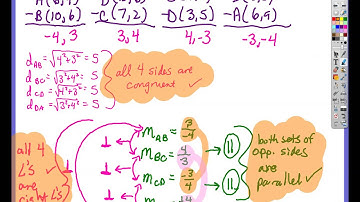 -B(10,6) -C(7,2) -D(3,5) -A(6,9)
-4, 3 3, 4 4, -3 -3, -4
d AB = √4²+3² = 5
d BC = √3²+4² = 5
d CD = √4²+3² = 5
d DA = √3²+4² = 5
all 4 sides are
congruent ✓
all 4
∠'s
are
right ∠'s
⊥
⊥
⊥
m AB = 3/-4
m BC = 4/3
m CD = -3/4
||
||
both sets of
opp. sides
are
parallel ✓